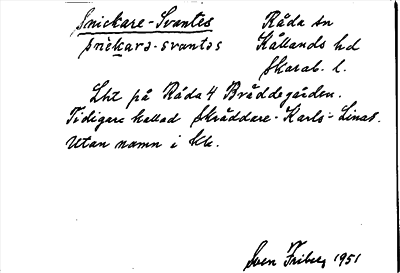 Snickare-Svantes Råda sn
snickara-svantes Kållands hd
Skarab. l.
Lht på Råda 4 Bräddegården.
Tidigare kallad Skräddare-Karls-Linas.
Utan namn i kk.
Sven Friberg 1951